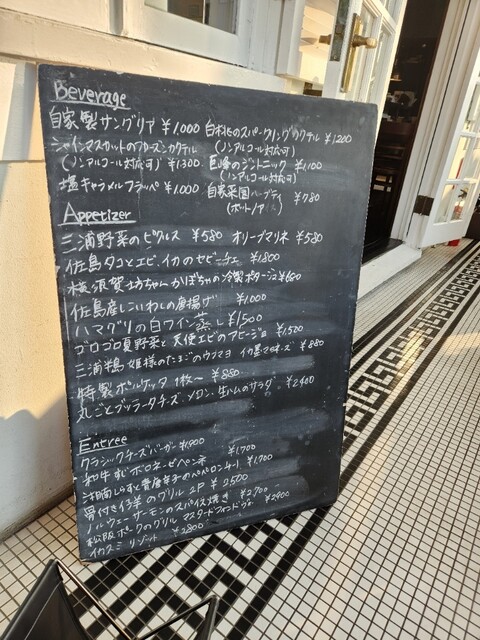 Beverage
自家製サングリア ¥1,000 白桃のスパークリングカクテル ¥1200
(ノンアルコール対応可)
シャインマスカットのフローズンカクテル
(ノンアルコール対応可) ¥1300 巨峰のジントニック ¥1,100
(ノンアルコール対応可)
塩キャラメルフラッペ ¥1,000 自家菜園ハーブティ ¥780
(ホット/アイス)
Appetizer
三浦野菜のピクルス ¥580 オリーブマリネ ¥580
佐島タコとエビ、イカのセビーチェ ¥1,800
横須賀かぼちゃの冷製ポタージュ ¥680
佐島産しこいわしの唐揚げ ¥1,000
ハマグリの白ワイン蒸し ¥1,500
ゴロゴロ夏野菜と天使エビのアヒージョ ¥1,500
三浦鶏 姫様のたまごのウフマヨ イカ墨マヨネーズ ¥880
特製ポルケッタ 1枚〜 ¥880
丸ごとブッラータチーズ、メロン、生ハムのサラダ ¥2400
Entree
クラシックチーズバーガー ¥1900
和牛すじボロネーゼペンネ ¥1700
しらすと青唐辛子のペペロンチーノ ¥1,700
骨付き仔羊のグリル 2P ¥2500
ノルウェーサーモンのスパイス焼き ¥2,700
松阪ポークのグリル マスタードフォンドヴォー ¥2900
イカスミリゾット ¥2800